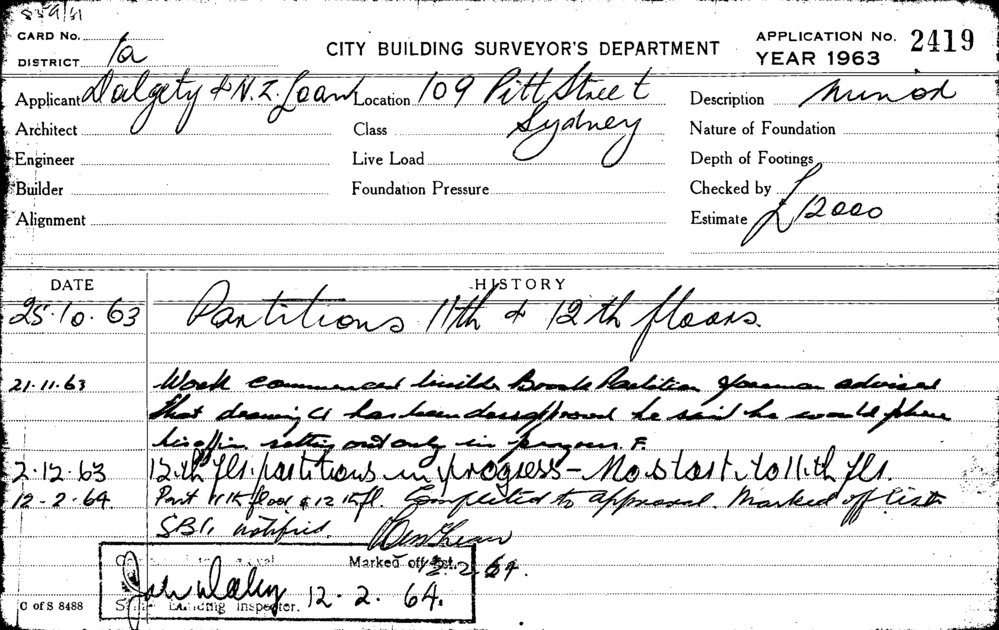 859/61
CARD No.
DISTRICT 1a
CITY BUILDING SURVEYOR'S DEPARTMENT
APPLICATION No. 2419
YEAR 1963
Applicant Dalgety & N.Z. Loan
Location 109 Pitt Street
Sydney
Description Minor
Architect
Class
Nature of Foundation
Engineer
Live Load
Depth of Footings
Builder
Foundation Pressure
Checked by
Alignment
Estimate £12000
DATE HISTORY
25.10.63 Partitions 11th & 12th floors.
21.11.63 Work commenced builder Brooks Partition foreman advised
that drawing has been disapproved he said he would phone
his office setting out only in progress. F.
2.12.63 12th fls. partitions in progress - No start to 11th fls.
12-2-64. Part 11th floor & 12th fl. Completed to approval. Marked off list
SBI. notified.
12.2.64.
Marked off list.
Building Inspector. 12.2.64.
C of S 8488